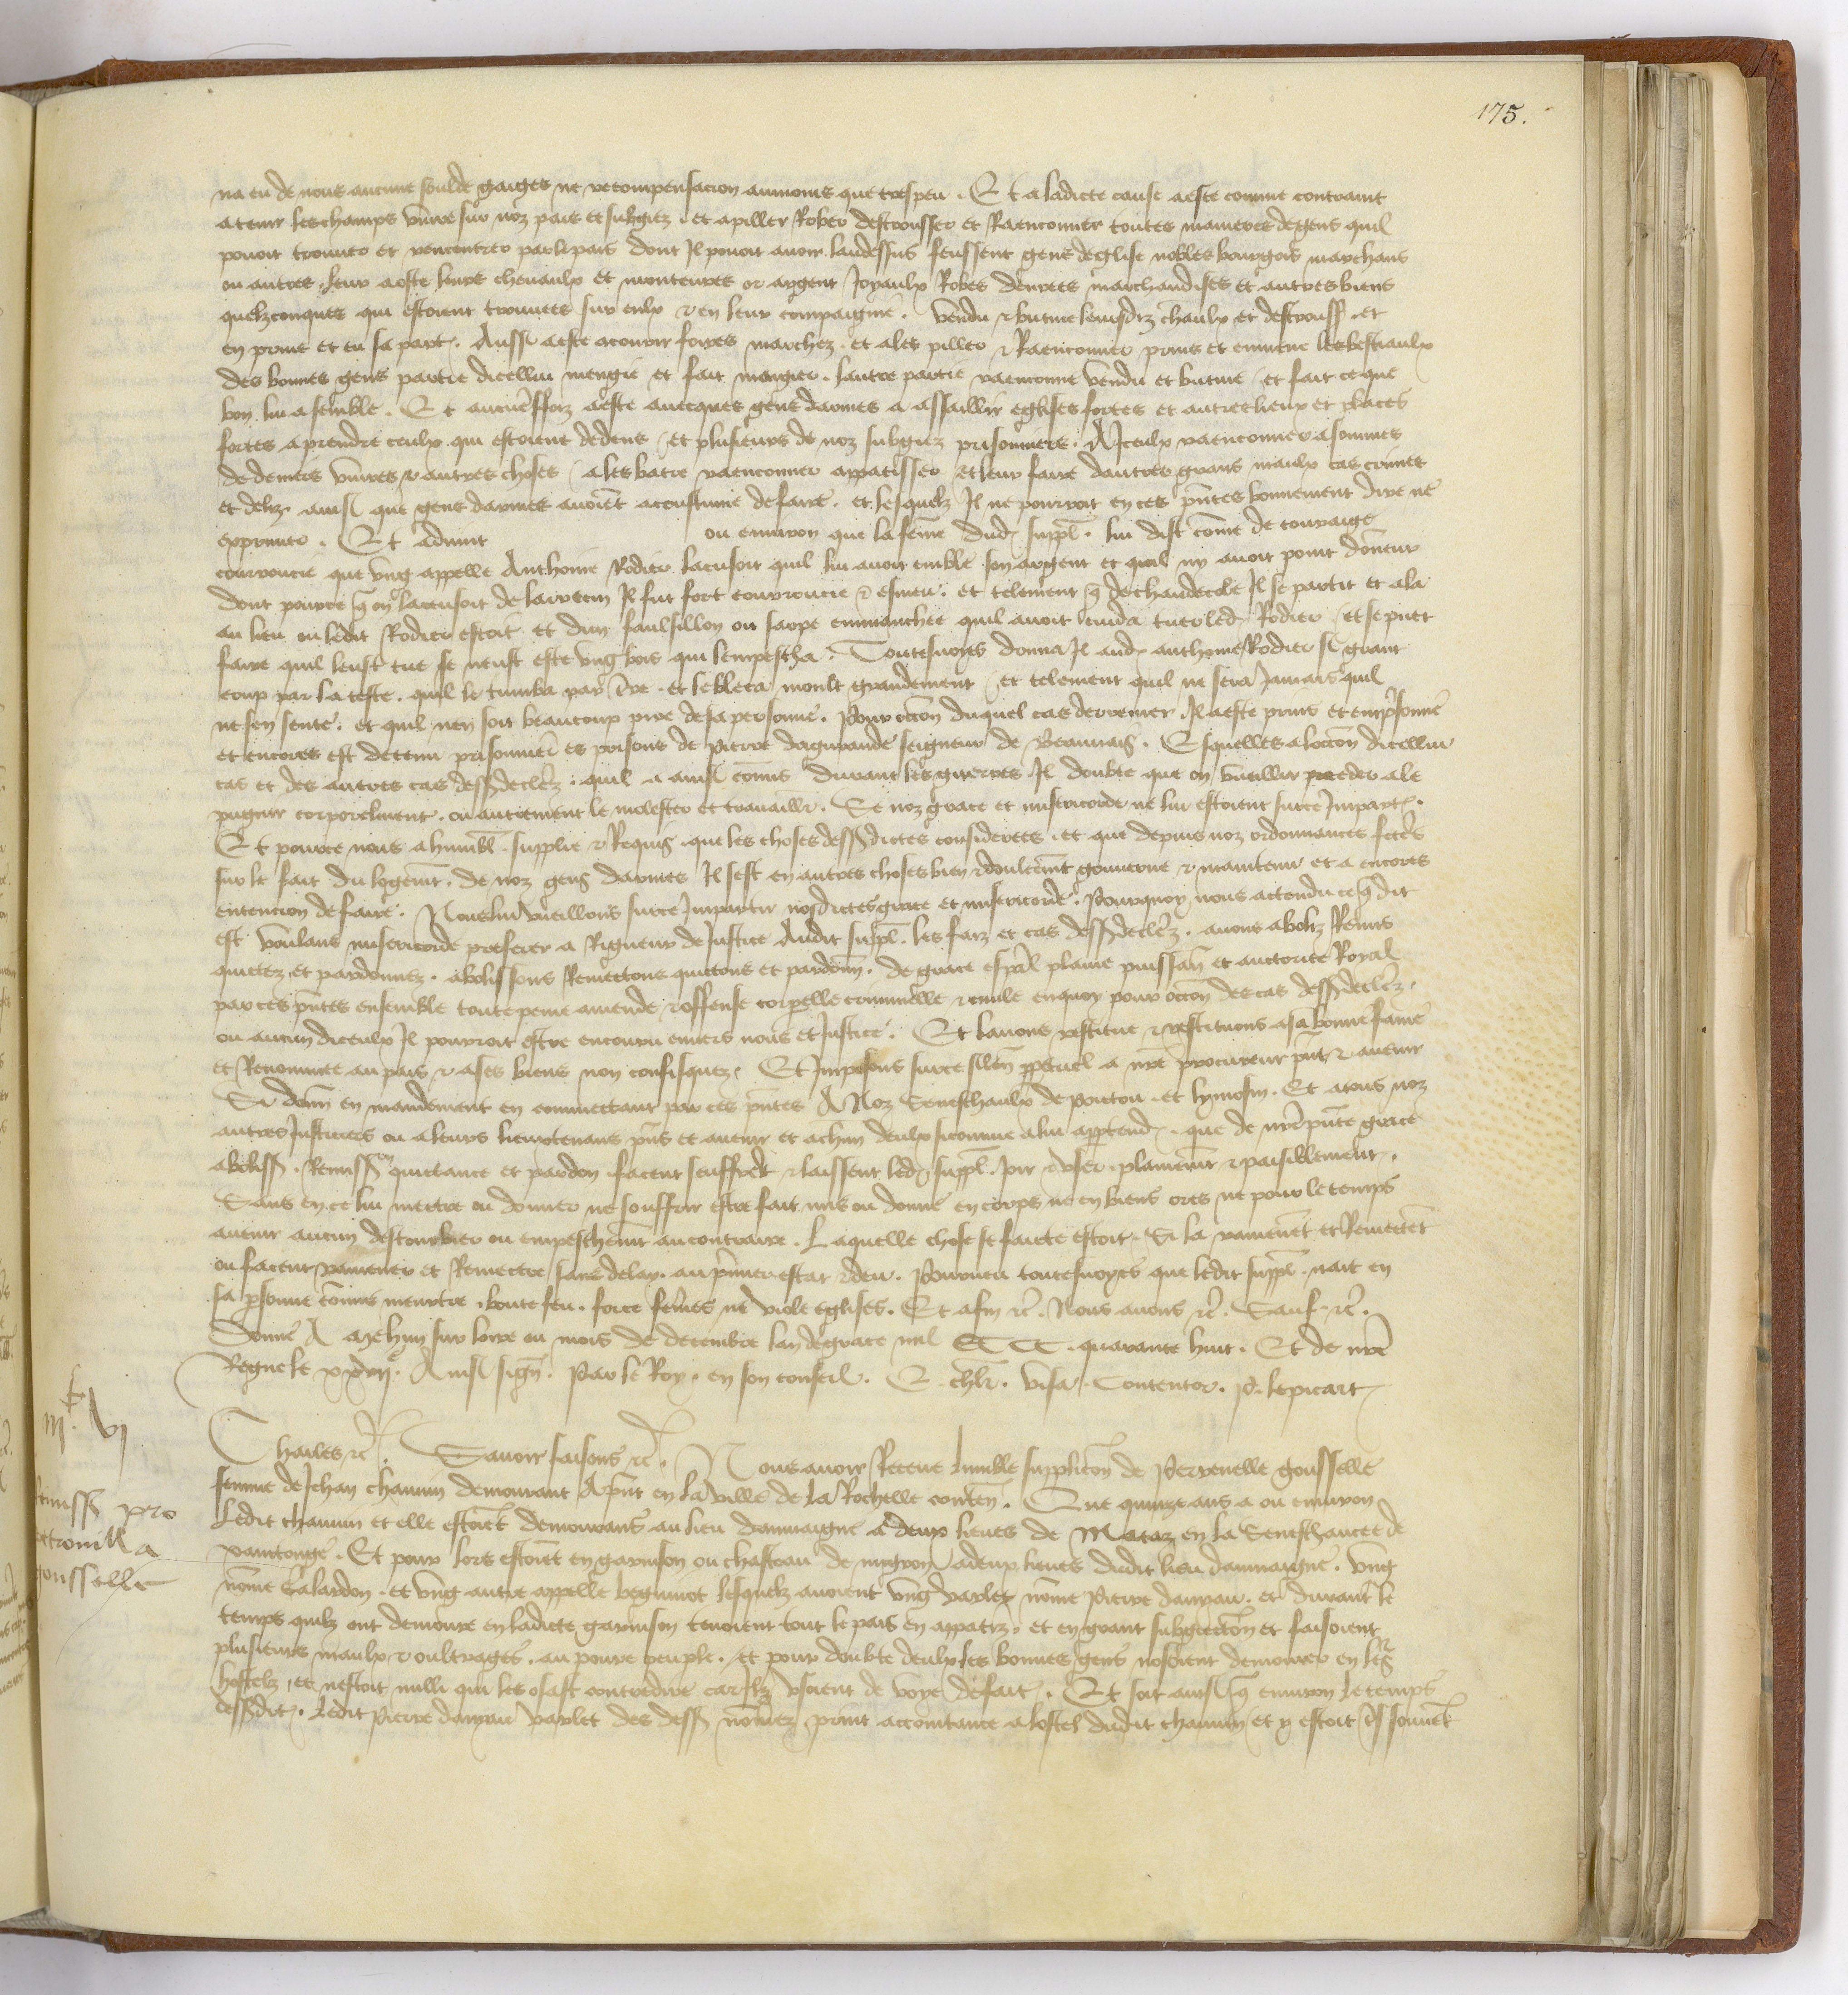 175.
na eu de nous aucune soulde gaiges ne recompensacion aumoins que trespeu. Et a ladicte cause a este comme contraint
a tenir les champs vivre sur noz pais et subgiez. et a piller Rober destrousser et Raenconner toutes manieres de gens quil
povoit trouver et rencontrer par le pais dont Il povoit avoir laudessus feussent gens deglise nobles bourgois marchans
ou autres. leur a oste leurs chevaulx et monteures or argent Joyaulx Robes denrees marchandises et autres biens
quelzconques qui estoient trouvees sur eulx et en leur compaignie. vendu et butine lesdiz chevaulx et destrousses. et
en prins et eu sa part. Aussi a este a courir foires marchez. et a les piller et Raenconner prins et emmene les bestiaulx
des bonnes gens partie dicellui mengie et fait mengier. lautre partie raenconne vendu et butine et fait ce que
bon lui a semble. Et aucuneffoiz a este avecques gens darmes a assaillir eglises fortes et autres lieux et places
fortes a prendre ceulx qui estoient dedens et plusieurs de noz subgiez prisonniers. A Iceulx raenconner a sommes
de deniers vivres et autres choses a les batre raenconner appatisser et leur faire dautres grans maulx cas crimes
et deliz ainsi que gens darmes avoient acoustume de faire. et lesquelz Il ne pourroit en ces presentes bonnement dire ne
exprimer. Et advint ou environ que la femme dud. suppl. lui dist comme de couraige
courroucie que ung appelle Anthoine Rodier lacusoit quil lui avoit emble son argent et quil ny avoit point donneur
dont pource que on laccusoit de larrecin Il fut fort courroucie et esmeu. et telement que de chaudecole Il se partit et ala
au lieu ou ledit Rodier estoit et dun faulsillon ou sarpe emmanchee quil avoit cuida tuer led. Rodier et se peut
faire quil leust tue se neust este ung bois qui lempescha. Toutesvoyes donna Il aud. anthoine Rodier si grant
coup par la teste. quil le tumba par terre et le bleca moult grandement et telement quil ne sera Jamais quil
ne sen sente. et quil nen soit beaucoup pire de sa personne. Pour occasion duquel cas derrenier. Il a este prins et emprisonne
et encores est detenu prisonnier es prisons de Pierre daguirande seigneur de Beauvais. Esquelles a loccasion dicellui
cas et des autres cas dessus declerez quil a ainsi commis durant les guerres Il doubte que on vueillir proceder a le
pugnir corporelment. ou autrement le molester et travailler. Se noz grace et misericorde ne lui estoient sur ce Imparties.
Et pource nous a humbl. supplie et Requis que les choses dessusdictes considerees. et que depuis noz ordonnances faictes
sur le fait du logement de noz gens darmes Il sest en autres choses bien et doulcement gouverne et maintenu et a encores
entencion de faire. Nous lui vueillons sur ce Impartir nosdictes grace et misericorde. Pourquoy nous actendu ce que dit
est voulans misericorde preferer a Rigueur de Justice Audit suppl. les faiz et cas dessus declerez. avons aboliz Remis
quictez et pardonnez. abolissons Remectons quictons et pardonn. de grace especial plaine puissan et auctorite Royal
par ces presentes ensemble toute peine amende et offense corporelle criminelle et civile en quoy pour occasion des cas dessus declerez.
ou aucun diceulx Il pourroit estre encouru envers nous et Justice. Et lavons restitue et restituons a sa bonne fame
et Renommee au pais et a ses biens non confisquez. Et Imposons sur ce silence perpetuel a nostre procureur present et avenir
Si donn en mandement en commectant par ces presentes A Noz Seneschaulx de poictou et lymosin. Et a tous noz
autres Justiciers ou a leurs lieuxtenans presens et avenir et a chun deulx sicomme a lui appartiendra. que de nostre presente grace
aboliss. Remiss quictance et pardon facent seuffrent et laissent led. suppl. joir et user plainement et paisiblement.
Sans en ce lui mectre ou donner ne souffrir estre fait mis ou donne en corps ne en biens ores ne pour le temps
avenir aucun destourbier ou empeschement au contraire. Laquelle chose se faicte estoit. Si la ramenent et Remectent
ou facent ramener et Remectre sans delay au premier estat et deu. Pourveu toutesvoyes que ledit suppl. nait en
sa personne commis meurtre. boute feu. force femmes ne viole eglises. Et afin etc. Nous avons etc. Sauf etc.
Donne A mehun sur loire ou mois de decembre lan de grace mil CCCC. quarante huit. Et de nostre
Regne le xxvije. Ainsi signe. Par le Roy. en son conseil. E. chlr. visa. Contentor. P. lepicart
Charles etc. Savoir faisons etc. Nous avoir Receue lumble supplicacion de Perrenelle gousselle
femme de Jehan chauvin demourant A present en la ville de la Rochelle conten. Que quinze ans a ou environ
Ledit chauvin et elle estoient demourans au lieu daumaigne a deux lieues de Mataz en la Seneschaucee de
xantonge. Et pour lors estoient en garnison ou chasteau de mignon a deux lieues dudit lieu daumaigne. ung
nomme Galardon. et ung autre appelle beguinot lesquelz avoient ung varlet nomme Pierre danyau. et durant le
temps quilz ont demoure en ladicte garnison tenoient tout le pais en appatiz. et en grant subgection et faisoient
plusieurs maulx et oultrages. au povre peuple. et pour doubte deulx les bonnes gens nosoient demourer en leurs
hostelz, et nestoit nulli qui les osast contredire car Ilz usoient de voye de fait. Et soit ainsi que environ le temps
dessusdit. Ledit Pierre danyau varlet des dess. nommez print accointance a lostel dudit chauvin et y estoit tres souvent
Remiss pro
petronilla
gousselle